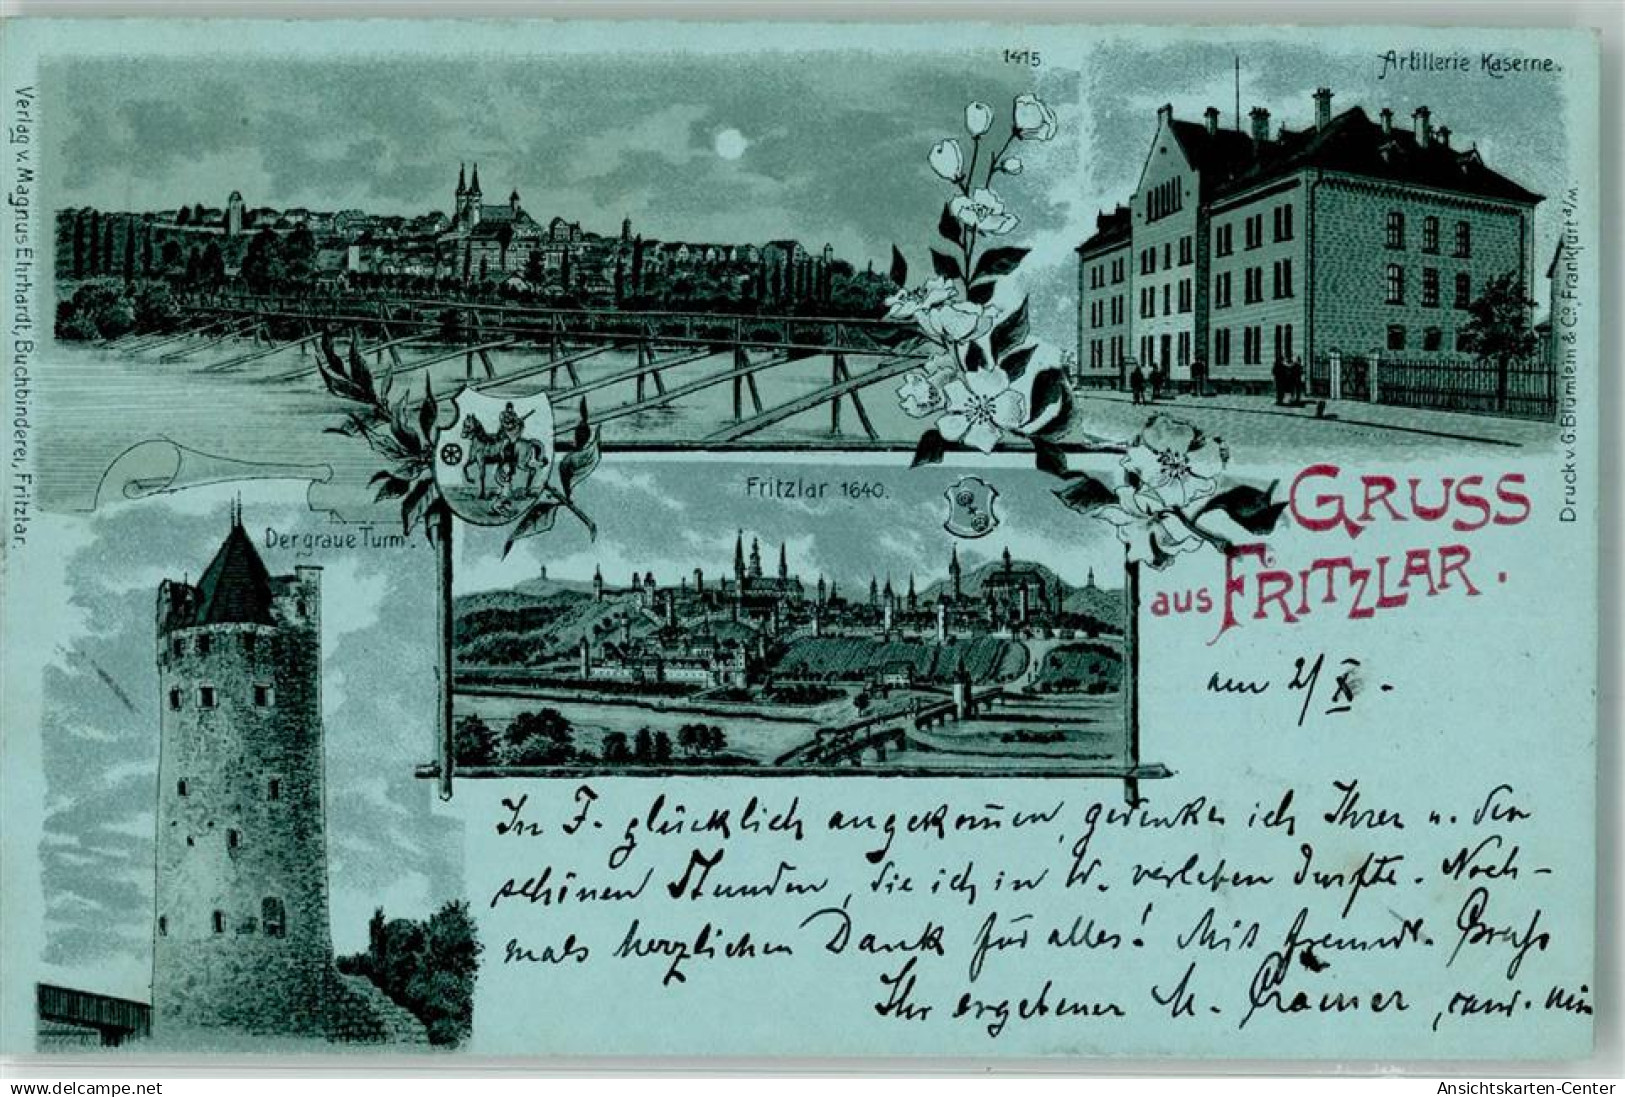 1415
Artillerie Kaserne.
Verlag v. Magnus Ehrhardt, Buchbinderei, Fritzlar.
Druck v. G. Blümlein & Co., Frankfurt a/M.
Der graue Turm.
Fritzlar 1640.
GRUSS
aus FRITZLAR.
am 2/X.
In F. glücklich angekom̅en, gedenke ich Ihrer u. der
schönen Stunden, die ich in W. verleben durfte. Noch-
mals herzlichen Dank für alles! Mit freundl. Gruß
Ihr ergebener M. Cramer, cand. min
delcampe.net
Ansichtskarten-Center